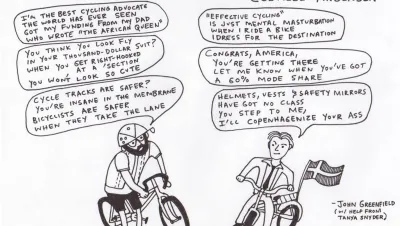 I'M THE BEST CYCLING ADVOCATE
THE WORLD HAS EVER SEEN
GOT MY FUNDING FROM MY DAD
WHO WROTE "THE AFRICAN QUEEN"
YOU THINK YOU LOOK FLY
IN YOUR THOUSAND-DOLLAR SUIT?
WHEN YOU GET RIGHT-HOOKED
AT A 'SECTION
YOU WON'T LOOK SO CUTE
CYCLE TRACKS ARE SAFER?
YOU'RE INSANE IN THE MEMBRANE
BICYCLISTS ARE SAFER
WHEN THEY TAKE THE LANE
"EFFECTIVE CYCLING"
IS JUST MENTAL MASTURBATION
WHEN I RIDE A BIKE
I DRESS FOR THE DESTINATION
CONGRATS, AMERICA,
YOU'RE GETTING THERE
LET ME KNOW WHEN YOU'VE GOT
A 60% MODE SHARE
HELMETS, VESTS & SAFETY MIRRORS
HAVE GOT NO CLASS
YOU STEP TO ME,
I'LL COPENHAGENIZE YOUR ASS
-JOHN GREENFIELD
(W/ HELP FROM
TANYA SNYDER)